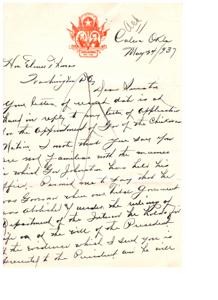 Calera Okla
May 24/37
Hon Elmer Thomas
Washington DC
Dear Senator
Your letter of recent date is at
hand in reply to my letter of application
for the appointment of Gov of the Chickasaw
Nation, I note that you say you
are not familiar with the manner
in which Gov Johnston has held his
office. Permit me to say that he
was Governor when our tribal Government
was abolished & under the ruling of
Department of the Interior he holds for
life or at the will of the President
in the evidence which I send you is
presented to the President and he will